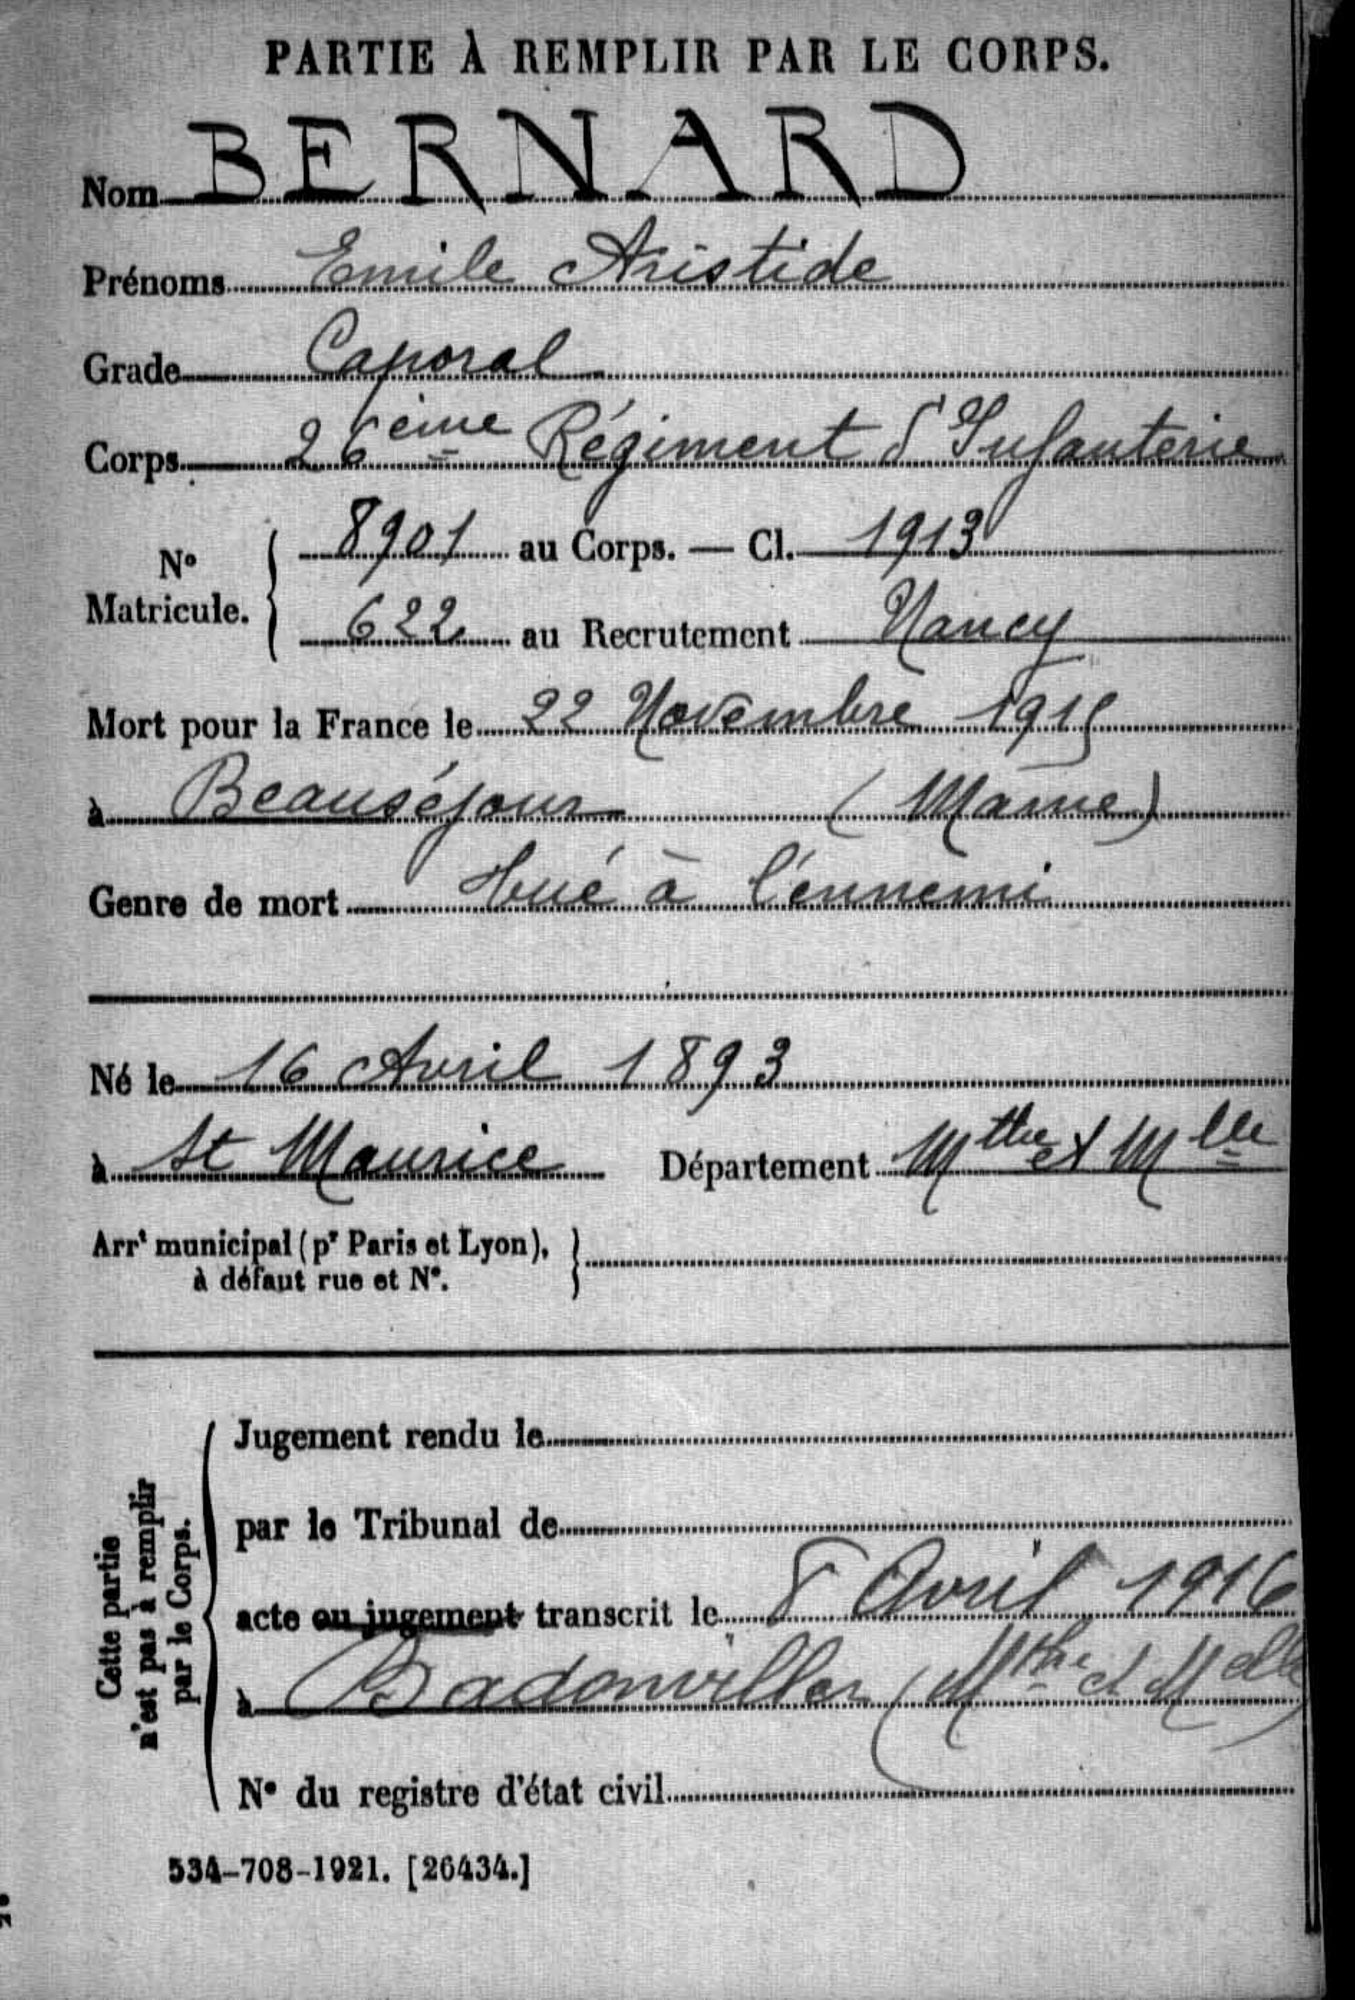 PARTIE À REMPLIR PAR LE CORPS.
Nom BERNARD
Prénoms Emile Aristide
Grade Caporal
Corps 26ème Régiment d'Infanterie
N° Matricule. { 8901 au Corps. — Cl. 1913
622 au Recrutement Nancy
Mort pour la France le 22 Novembre 1915
à Beauséjour (Marne)
Genre de mort Tué à l'ennemi
Né le 16 Avril 1893
à St Maurice Département Mthe et Mlle
Arrt municipal (pr Paris et Lyon), }
à défaut rue et N°.
Cette partie
n'est pas à remplir
par le Corps.
Jugement rendu le
par le Tribunal de
acte ou jugement transcrit le 8 Avril 1916
à Badonviller (Mthe et Melle)
N° du registre d'état civil
534-708-1921. [26434.]